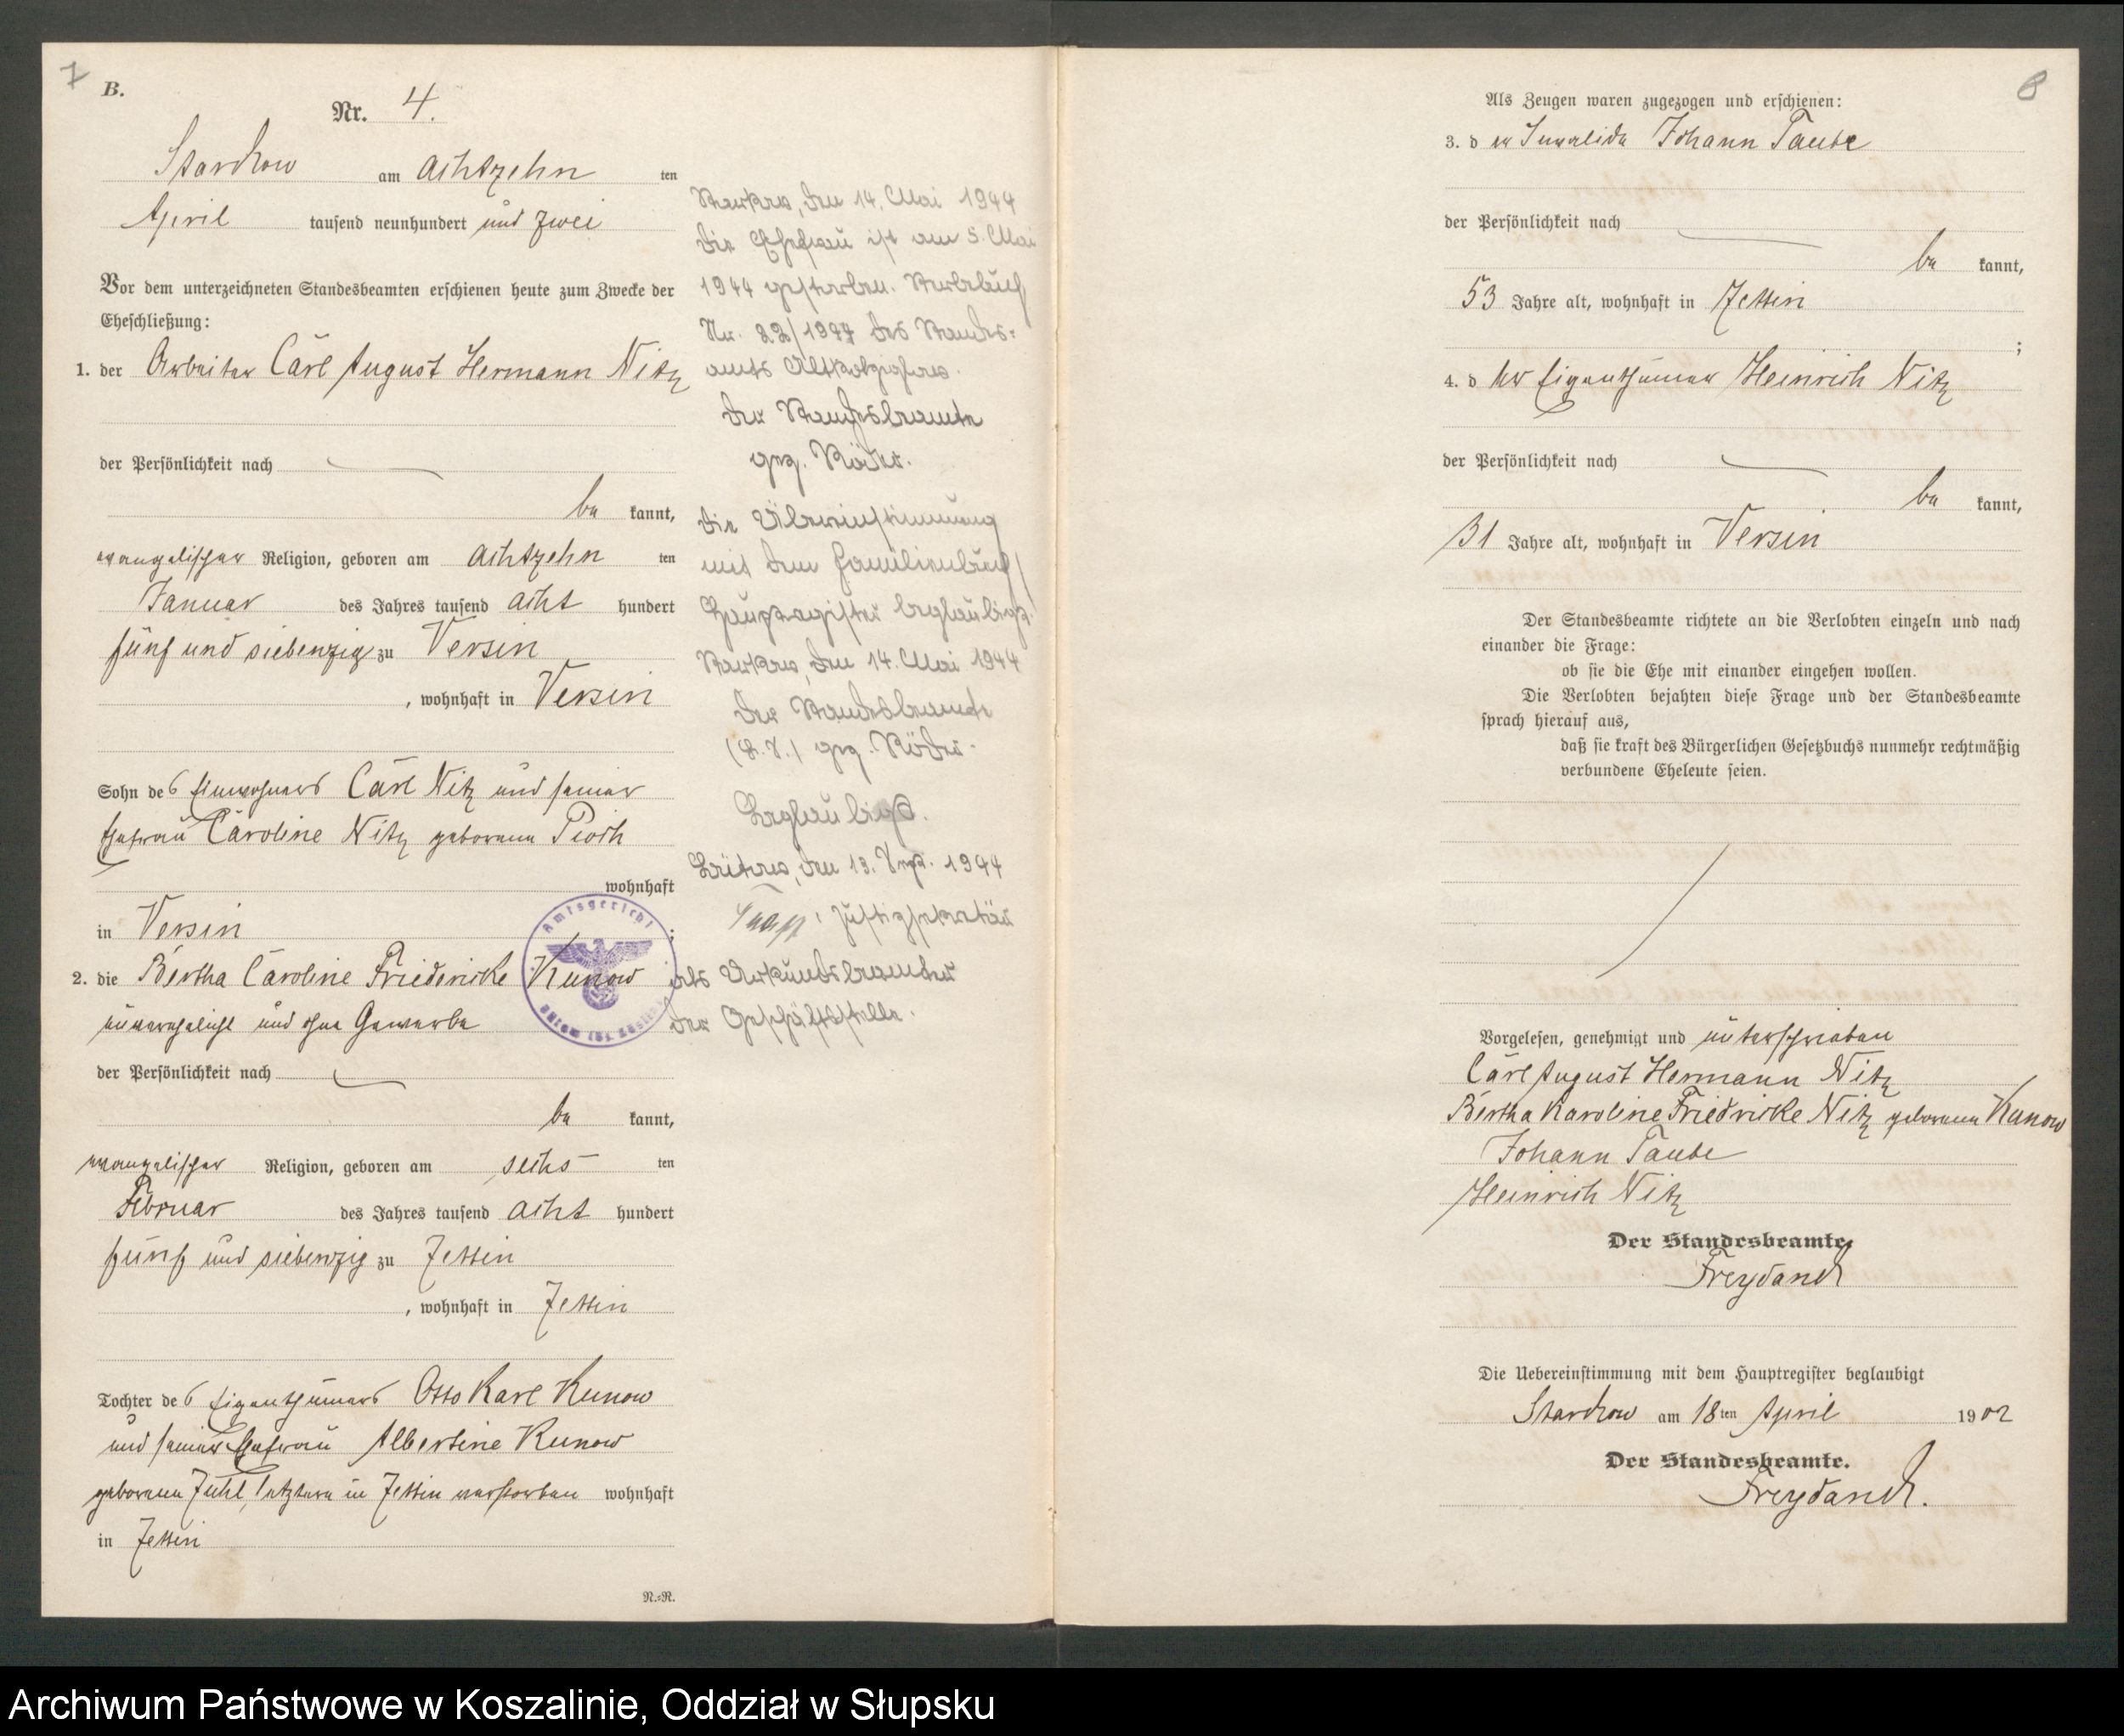 7
B.
Nr. 4.
Starckow am achtzehn ten
April tausend neunhundert und zwei
Vor dem unterzeichneten Standesbeamten erschienen heute zum Zwecke der
Eheschließung:
1. der Arbeiter Carl August Hermann Nitz
der Persönlichkeit nach
be kannt,
evangelischer Religion, geboren am achtzehn ten
Januar des Jahres tausend acht hundert
fünf und siebenzig zu Versin
, wohnhaft in Versin
Sohn des Einwohners Carl Nitz und seiner
Ehefrau Caroline Nitz geborene Pioch
wohnhaft
in Versin ;
2. die Bertha Caroline Friedericke Kunow
unverehelicht und ohne Gewerbe
der Persönlichkeit nach
be kannt,
evangelischer Religion, geboren am sechs ten
Februar des Jahres tausend acht hundert
fünf und siebenzig zu Zettin
, wohnhaft in Zettin
Tochter des Eigenthümers Otto Karl Kunow
und seiner Ehefrau Albertine Kunow
geborene Zühl, letztere in Zettin verstorben wohnhaft
in Zettin
N.=N.
Starkow, den 14. Mai 1944
Die Ehefrau ist am 5. Mai
1944 gestorben. Sterbebuch
Nr. 22/1944 des Standes=
amts Altkolziglow.
Der Standesbeamte
gez. Röder.
Die Übereinstimmung
mit dem Familienbuch/
Hauptregister beglaubigt.
Starkow, den 14. Mai 1944
Der Standesbeamte
(L.S.) gez. Röder.
Beglaubigt.
Bütow, den 13. Sept. 1944
Justizsekretär
als Urkundsbeamter
der Geschäftsstelle.
Amtsgericht
8
Als Zeugen waren zugezogen und erschienen:
3. d er Invalide Johann Taube
der Persönlichkeit nach
be kannt,
53 Jahre alt, wohnhaft in Zettin
;
4. d er Eigenthümer Heinrich Nitz
der Persönlichkeit nach
be kannt,
31 Jahre alt, wohnhaft in Versin
Der Standesbeamte richtete an die Verlobten einzeln und nach
einander die Frage:
ob sie die Ehe mit einander eingehen wollen.
Die Verlobten bejahten diese Frage und der Standesbeamte
sprach hierauf aus,
daß sie kraft des Bürgerlichen Gesetzbuchs nunmehr rechtmäßig
verbundene Eheleute seien.
Vorgelesen, genehmigt und unterschrieben
Carl August Hermann Nitz
Bertha Karoline Friedricke Nitz geborene Kunow
Johann Taube
Heinrich Nitz
Der Standesbeamte.
Freydanck
Die Uebereinstimmung mit dem Hauptregister beglaubigt
Starckow am 18ten April 1902
Der Standesbeamte.
Freydanck.
Archiwum Państwowe w Koszalinie, Oddział w Słupsku